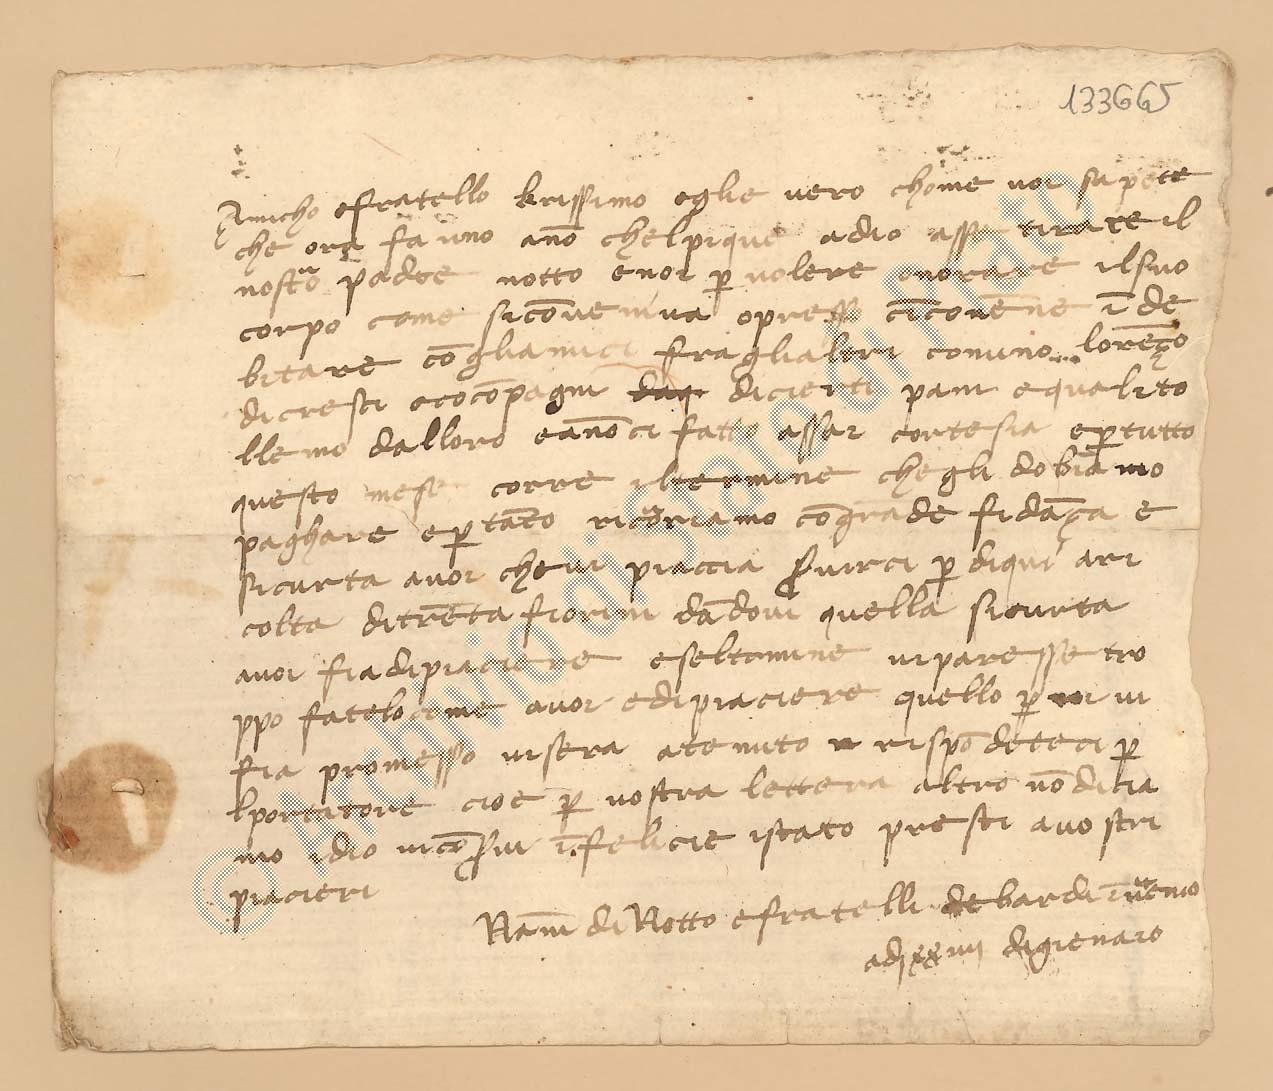 133665
Amicho efratello krissimo eglie vero chome voi sapete
che ora fa uno ano chelpique adio asse tirare il
nostro padre notto e noi p volere onorare ilsuo
corpo come siconveniva opresso ciconvene i de
bitare co gliamici fraglialtri comuno lorenço
dicresci ecocopagni dicierti pani equali to
llemo dalloro eanoci fatto assai cortesia eptutto
questo mese corre iltermine chegli dobiamo
paghare eptato ricoriamo co grade fidaça e
sicurta avoi chevi piaccia servirci p diqui ari
colta ditreta fiorini dadovi quella sicurta
avoi fia dipiaciere eseltermine viparesse tro
ppo fatelo come avoi edipiaciere quello p noi vi
fia promesso visera atenuto rispodeteci p
lportatore cioe p vostra lettera altro no dicia
mo idio viconservi i felicie istato presti avostri
piacieri
Nani di Notto efratelli de bardi i vernio
adi xxiiii digienaro
© Archivio di Stato di Prato